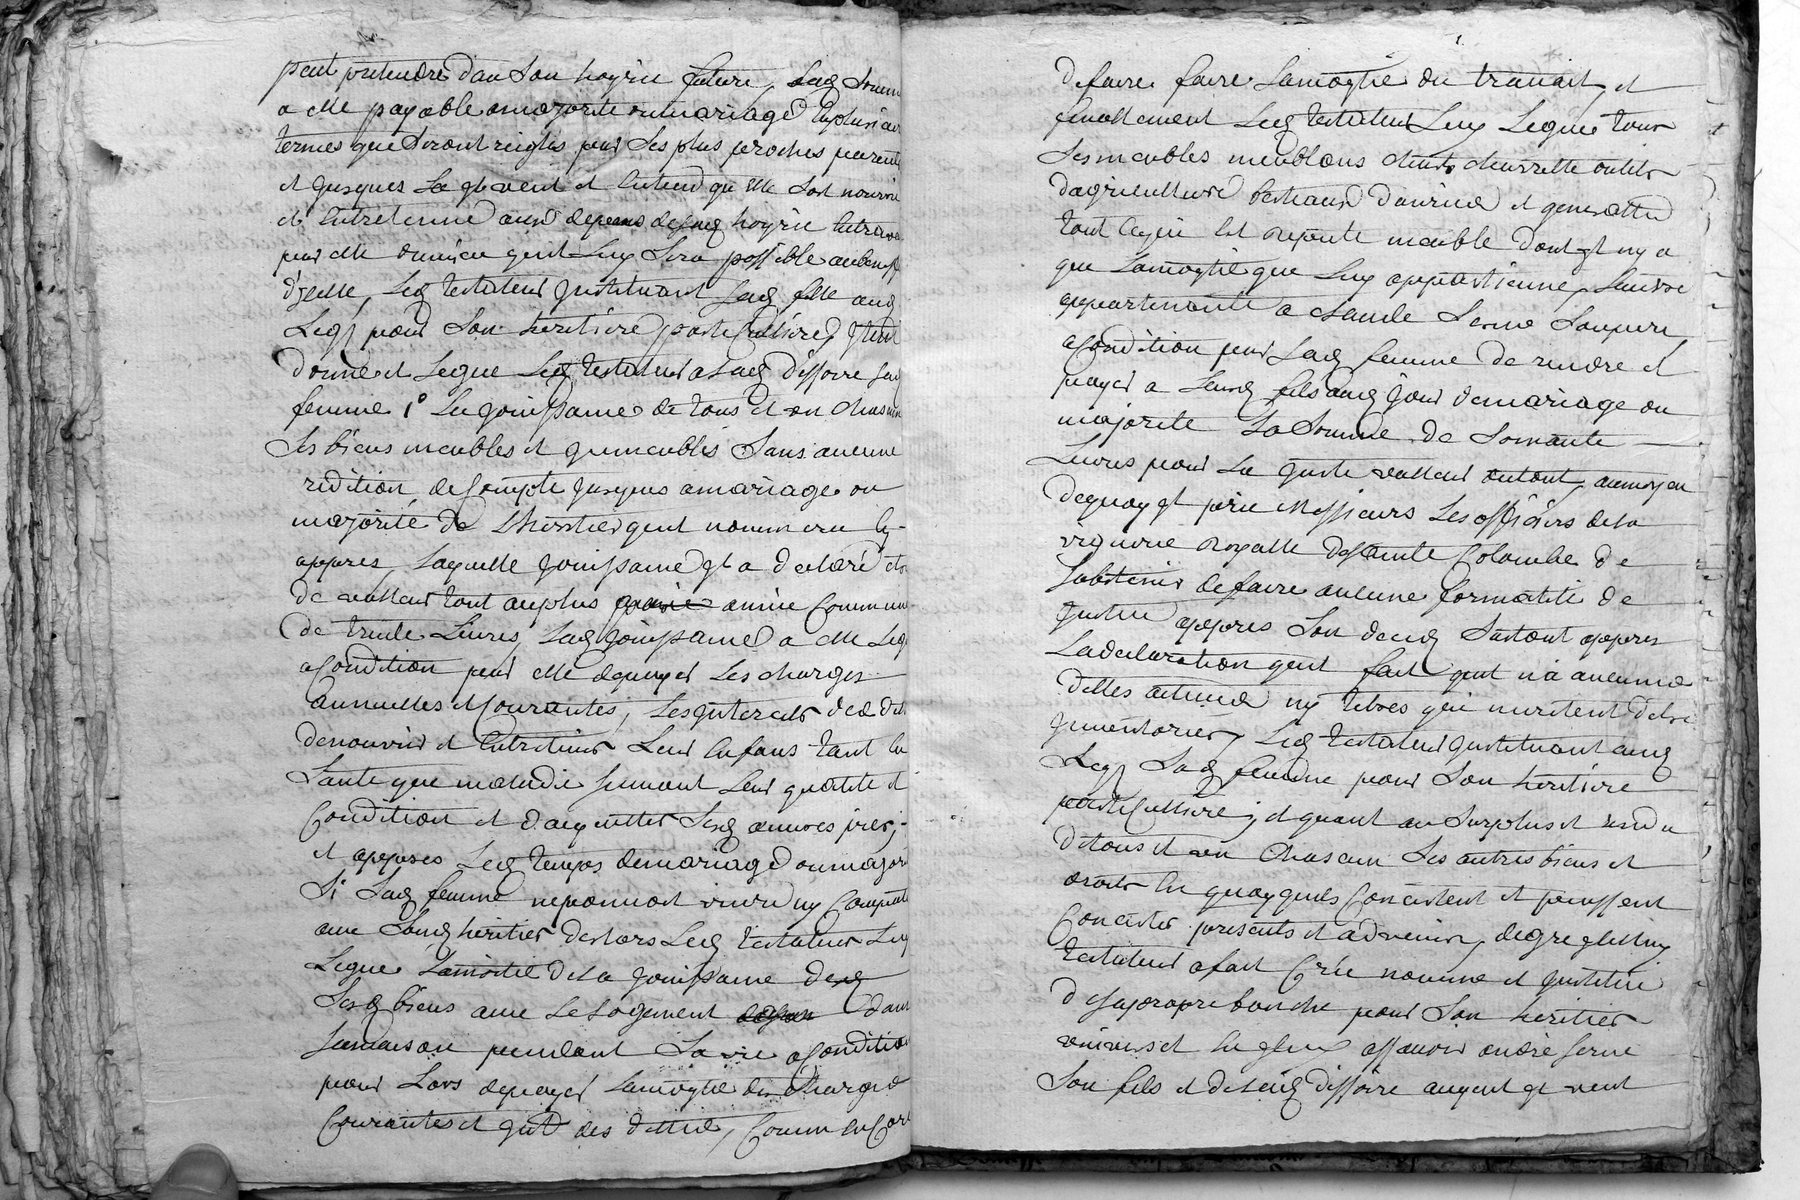 peut pretendre dan son hoyrie future, lad somme
a elle payable a majorite ou mariage en plusieurs
termes que seront reiglés par ses plus proches parents
et jusques la jl veut et entend qu elle soit nourrie
et entretenue aux depens de sad hoyrie
par elle qu'il luy sera possible
d'jcelle, led testateur jnstituant lad fille aud
legs pour son heritiere particulliere, jtem
donne et legue led testateur a lad dissoire sad
femme 1° la jouissance de tous et un chascun
ses biens meubles et jmmeubles sans aucune
redition de compte jusques a mariage ou
majorité de lheritier quil nommera cy
appres, laquelle jouissance jl a declaré etre
de valleur tout au plus année commune
de trente livres, lad jouissance a elle leg
a condition par elle de payer les charges
annuelles et courantes, les jnterests des det
de nourrir et entretenir leurs enfans tant en
sante que maladie suivant leur qualité et
condition et d'acquitter sesd œuvres pies,
et appres led temps de mariage ou majori
si sad femme ne pouvoit vivre ny compati
avec sond heritier des lors led testateur luy
legue lamoitié de la jouissance de
sesd biens avec le logement dans
sa maison pendant sa vie a condition
pour lors de payer lamoytié des charges
courantes et jnt des dettes, comme encore
de faire faire lamoytié du travail, et
finallement led testateur luy legue tous
ses meubles meublans chard charrette outils
dagriculture bestiaux daurice et generallem
tout ce qui est repeute meuble dont jl ny a
que lamoytié que luy appartienne, lautre
appartenante a Claude Serve son pere
a condition par sad femme de rendre et
payer a sond fils aud jour de mariage ou
majorite la somme de soixante
livres pour la juste valleur, au moyen
de quoy jl prie Messieurs les officiers de la
viguerie Royalle de Sainte Colombe de
sabstenir de faire aucune formalité de
justice appres son deced surtout appres
la declaration quil fait quil n'a aucunes
dettes actives ny titres qui meritent d'etre
jnventoriés, led testateur jnstituant aud
legs sad femme pour son heritiere
particulliere; et quant au surplus et residu
de tous et un chascun ses autres biens et
droits en quoy quils consistent et puissent
consister presents et advenir, degre led
testateur a fait cree nomme et jnstitué
de sa propre bouche pour son heritier
universel assavoir andré Serve
son fils et de lad dissoire auquel jl veut